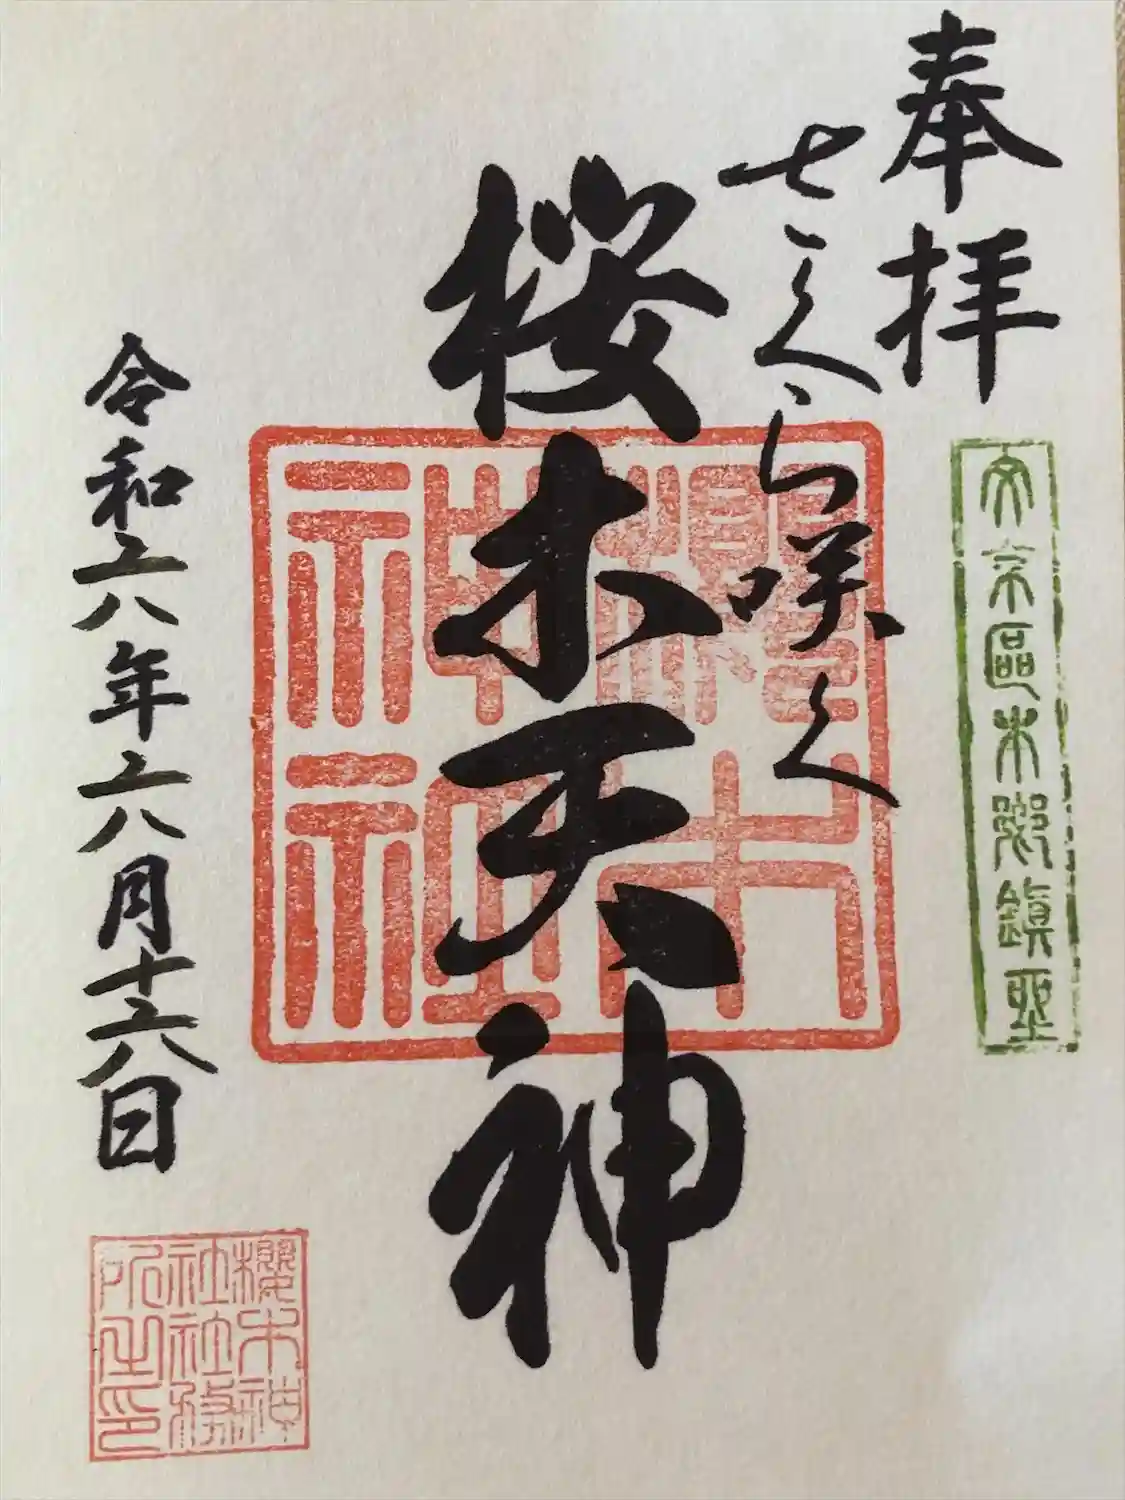 奉拝
文京區本郷鎮坐
さくら咲く
桜木天神
櫻木
神社
令和六年六月十六日
櫻木神
社社務
所之印